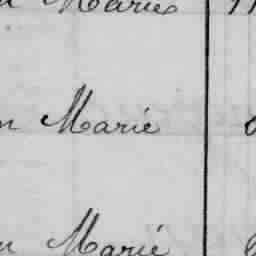 Marie
n Marie
n Marie